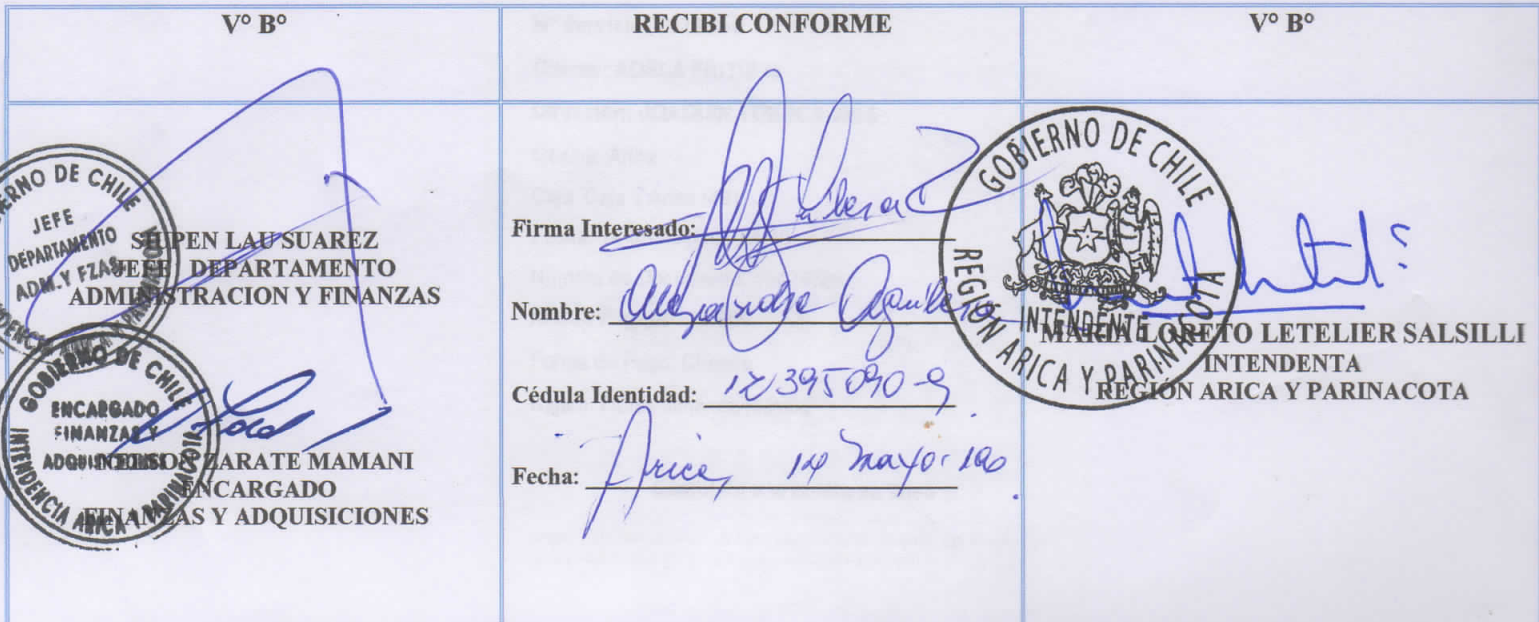 V° B°
RECIBI CONFORME
V° B°
GOBIERNO DE CHILE
JEFE
DEPARTAMENTO
ADM. Y FZAS
SIUPEN LAU SUAREZ
JEFE DEPARTAMENTO
ADMINISTRACION Y FINANZAS
GOBIERNO DE CHILE
ENCARGADO
FINANZAS Y
ADQUISICIONES
INTENDENCIA ARICA Y PARINACOTA
ZARATE MAMANI
ENCARGADO
FINANZAS Y ADQUISICIONES
Firma Interesado:
Nombre: Aguilera
Cédula Identidad: 12395090-9
Fecha: Arica, mayo
GOBIERNO DE CHILE
INTENDENTE
REGIÓN ARICA Y PARINACOTA
MARIA LORETO LETELIER SALSILLI
INTENDENTA
REGIÓN ARICA Y PARINACOTA